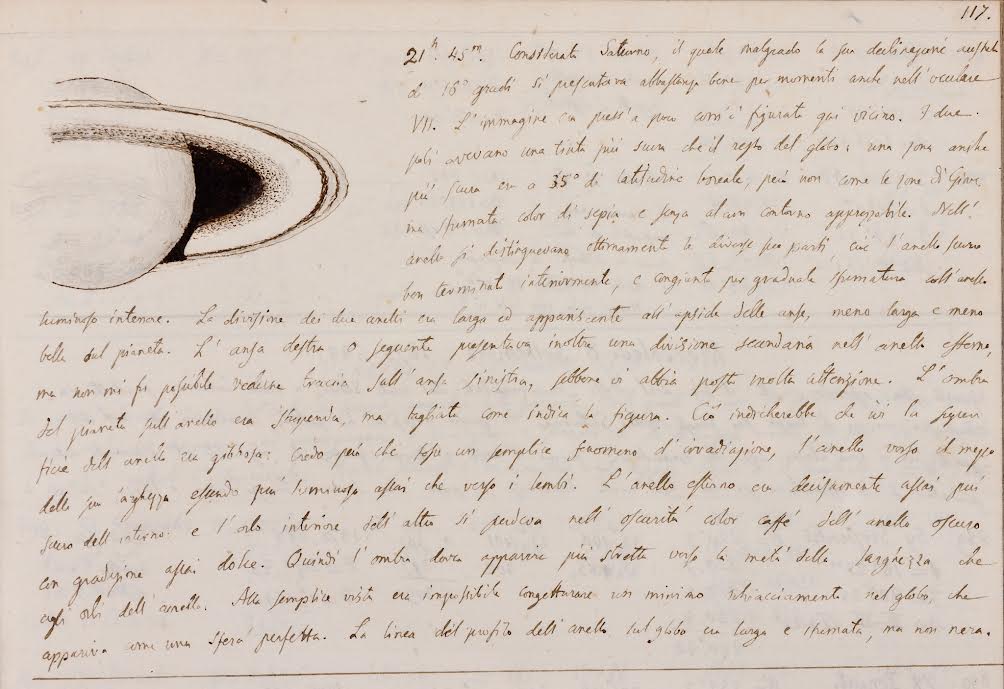 117.
21ʰ. 45ᵐ. Considerato Saturno, il quale malgrado la sua declinazione australe
di 16° gradi si presentava abbastanza bene per momenti anche nell'oculare
VII. L'immagine era press'a poco com'è figurata qui vicino. I due
poli avevano una tinta più scura che il resto del globo: una zona anche
più scura era a 35° di latitudine boreale, però non come le zone di Giove
ma sfumata color di sepia e senza alcun contorno apprezzabile. Nell'
anello si distinguevano ottimamente le diverse sue parti, cioè l'anello scuro
ben terminato interiormente, e congiunto per graduale sfumatura coll'anello
luminoso interiore. La divisione dei due anelli era larga ed appariscente all'apside delle anse, meno larga e meno
bella sul pianeta. L'ansa destra o seguente presentava inoltre una divisione secondaria nell'anello esterno,
ma non mi fu possibile vederne traccia sull'ansa sinistra, sebbene vi abbia posta molta attenzione. L'ombra
del pianeta sull'anello era stupenda, ma tagliata come indica la figura. Ciò indicherebbe che ivi la super
ficie dell'anello era gibbosa: credo però che fosse un semplice fenomeno d'irradiazione, l'anello verso il mezzo
della sua larghezza essendo più luminoso assai che verso i lembi. L'anello esterno era decisamente assai più
scuro dell'interno: e l'orlo interiore dell'altro si perdeva nell'oscurità color caffè dell'anello oscuro
con gradazione assai dolce. Quindi l'ombra dovea apparire più stretta verso la metà della larghezza che
agli orli dell'anello. Alla semplice vista era impossibile congetturare un minimo schiacciamento nel globo, che
appariva come una sfera perfetta. La linea del profilo dell'anello sul globo era larga e sfumata, ma non nera.